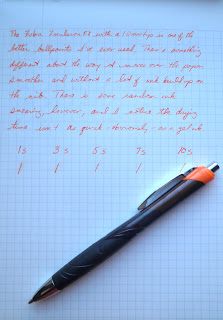 The Zebra Emulsion EX with a 1.0mm tip is one of the
better ballpoints I've ever used. There's something
different about the way it moves over the paper
smoother and without a lot of ink build up on
the nib. There is some random ink
smearing, however, and I notice the drying
time isn't as quick - obviously - as a gel ink
1s 3s 5s 7s 10s